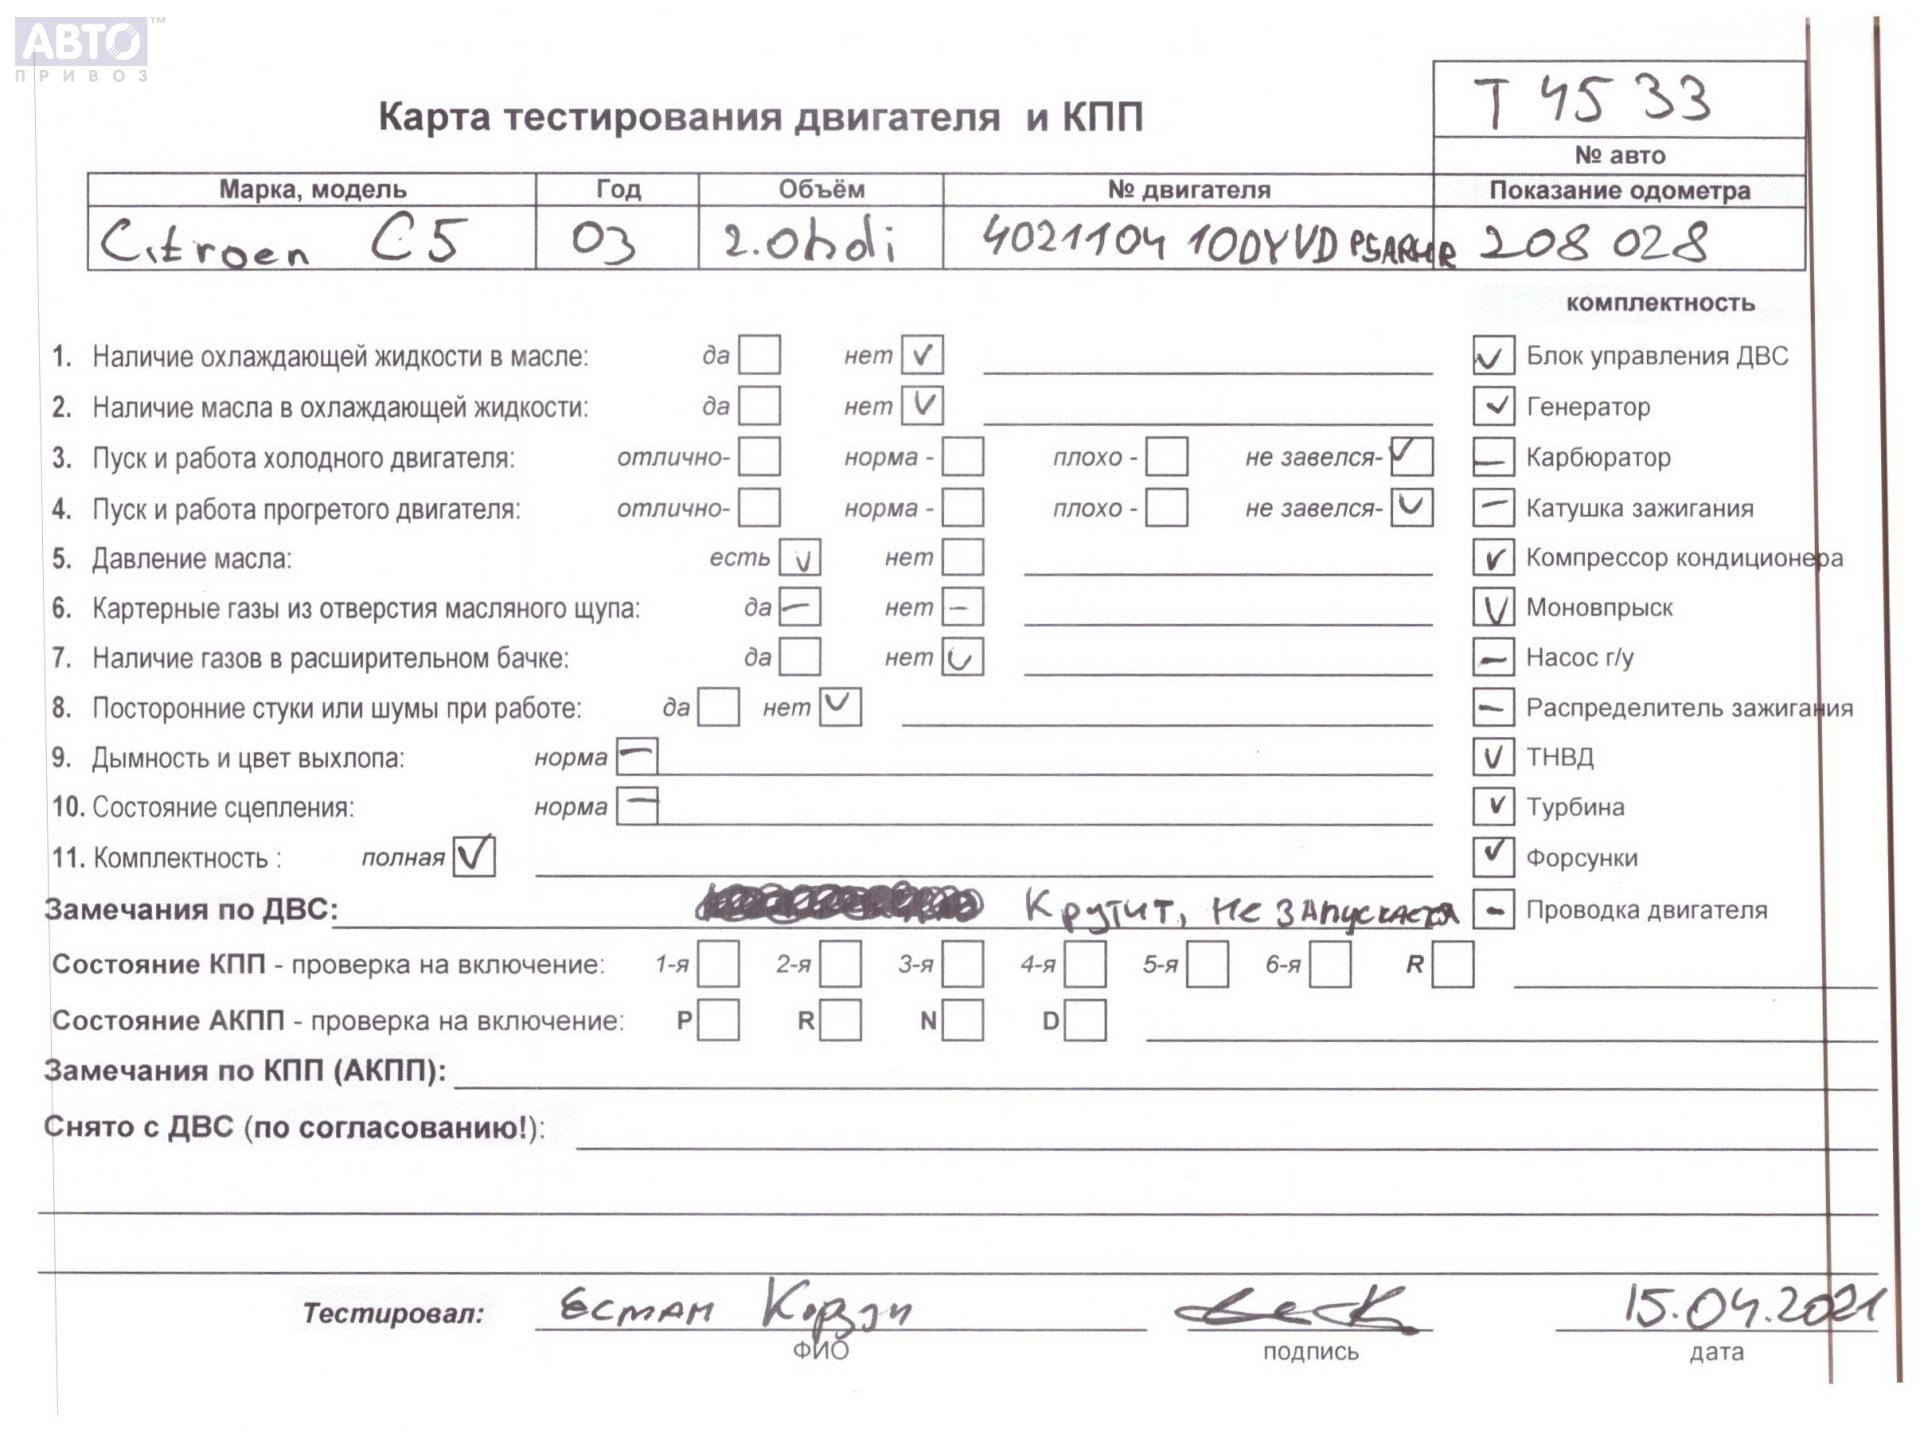 АВТО™
ПРИВОЗ
Т 45 33
Карта тестирования двигателя и КПП
№ авто
Марка, модель Год Объём № двигателя Показание одометра
Citroen C5 03 2.0hdi 4021104 10DYVD 208 028
комплектность
1. Наличие охлаждающей жидкости в масле: да нет ✓ ✓ Блок управления ДВС
2. Наличие масла в охлаждающей жидкости: да нет ✓ ✓ Генератор
3. Пуск и работа холодного двигателя: отлично- норма - плохо - не завелся- ✓ — Карбюратор
4. Пуск и работа прогретого двигателя: отлично- норма - плохо - не завелся- ✓ — Катушка зажигания
5. Давление масла: есть ✓ нет ✓ Компрессор кондиционера
6. Картерные газы из отверстия масляного щупа: да — нет — ✓ Моновпрыск
7. Наличие газов в расширительном бачке: да нет ✓ — Насос г/у
8. Посторонние стуки или шумы при работе: да нет ✓ — Распределитель зажигания
9. Дымность и цвет выхлопа: норма — ✓ ТНВД
10. Состояние сцепления: норма — ✓ Турбина
11. Комплектность : полная ✓ ✓ Форсунки
Замечания по ДВС: Крутит, не запускается — Проводка двигателя
Состояние КПП - проверка на включение: 1-я 2-я 3-я 4-я 5-я 6-я R
Состояние АКПП - проверка на включение: P R N D
Замечания по КПП (АКПП):
Снято с ДВС (по согласованию!):
Тестировал: 15.04.2021
ФИО подпись дата